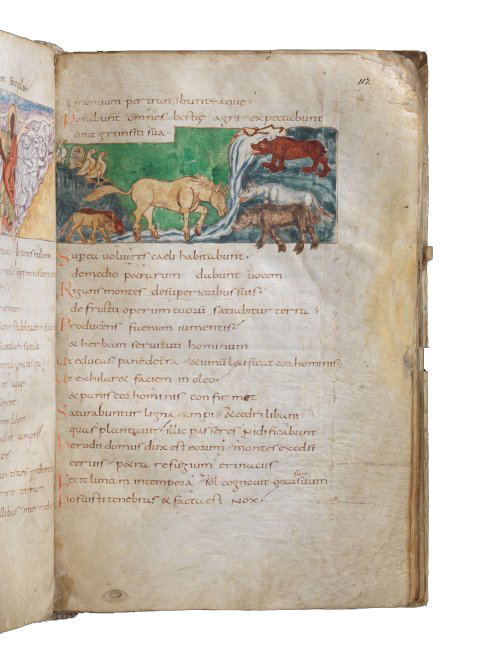 117
montium pertransibunt aquę·
Potabunt omnes bestię agri· expectabunt
onagri in siti sua·
Sup ea uolucres caeli habitabunt·
de medio petrarum dabunt uocem
Rigans montes de superioribus suis·
de fructu operum tuorū satiabitur terra
Producens fuenum iumentis·
& herbam seruituti hominum
Ut educas panē de terra· & uinū l&ificat cor hominis
Ut exhilar& faciem in oleo·
& panis cor hominis confirm&
Saturabuntur ligna campi & cedri libani
quas plantauit· illic passeres Nidificabunt
Herodii domus dux est eorum· montes excelsi
ceruis· petra refugium erinaciis
Fecit lunam in tempora· sol cognouit occasum suum
Posuisti tenebras & facta est Nox·